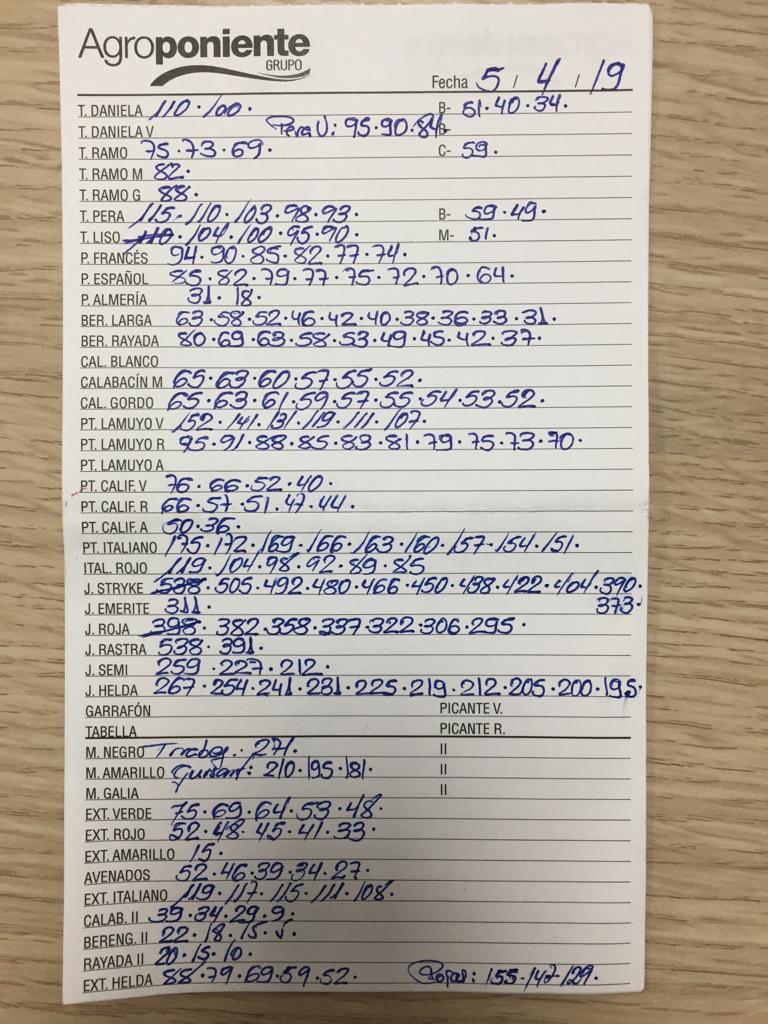 Agroponiente
GRUPO
Fecha 5 / 4 / 19
T. DANIELA 110 · 100 · B- 51 · 40 · 34 ·
T. DANIELA V Pera V: 95 · 90 · 84 B-
T. RAMO 75 · 73 · 69 · C- 59 ·
T. RAMO M 82 ·
T. RAMO G 88 ·
T. PERA 115 · 110 · 103 · 98 · 93 · B- 59 · 49 ·
T. LISO 110 · 104 · 100 · 95 · 90 · M- 51 ·
P. FRANCÉS 94 · 90 · 85 · 82 · 77 · 74 ·
P. ESPAÑOL 85 · 82 · 79 · 77 · 75 · 72 · 70 · 64 ·
P. ALMERÍA 31 · 18 ·
BER. LARGA 63 · 58 · 52 · 46 · 42 · 40 · 38 · 36 · 33 · 31 ·
BER. RAYADA 80 · 69 · 63 · 58 · 53 · 49 · 45 · 42 · 37 ·
CAL. BLANCO
CALABACÍN M 65 · 63 · 60 · 57 · 55 · 52 ·
CAL. GORDO 65 · 63 · 61 · 59 · 57 · 55 · 54 · 53 · 52 ·
PT. LAMUYO V 152 · 141 · 131 · 119 · 111 · 107 ·
PT. LAMUYO R 95 · 91 · 88 · 85 · 83 · 81 · 79 · 75 · 73 · 70 ·
PT. LAMUYO A
PT. CALIF. V 76 · 66 · 52 · 40 ·
PT. CALIF. R 66 · 57 · 51 · 47 · 44 ·
PT. CALIF. A 50 · 36 ·
PT. ITALIANO 175 · 172 · 169 · 166 · 163 · 160 · 157 · 154 · 151 ·
ITAL. ROJO 119 · 104 · 98 · 92 · 89 · 85
J. STRYKE 538 · 505 · 492 · 480 · 466 · 450 · 438 · 422 · 404 · 390 ·
J. EMERITE 311 · 373 ·
J. ROJA 398 · 382 · 358 · 337 · 322 · 306 · 295 ·
J. RASTRA 538 · 391 ·
J. SEMI 259 · 227 · 212 ·
J. HELDA 267 · 254 · 241 · 231 · 225 · 219 · 212 · 205 · 200 · 195 ·
GARRAFÓN PICANTE V.
TABELLA PICANTE R.
M. NEGRO 271 · II
M. AMARILLO 210 · 195 · 181 · II
M. GALIA II
EXT. VERDE 75 · 69 · 64 · 53 · 48 ·
EXT. ROJO 52 · 48 · 45 · 41 · 33 ·
EXT. AMARILLO 15 ·
AVENADOS 52 · 46 · 39 · 34 · 27 ·
EXT. ITALIANO 119 · 117 · 115 · 111 · 108 ·
CALAB. II 39 · 34 · 29 · 9 ·
BERENG. II 22 · 18 · 15 · 5 ·
RAYADA II 20 · 15 · 10 ·
EXT. HELDA 88 · 79 · 69 · 59 · 52 · Rojas: 155 · 147 · 129 ·